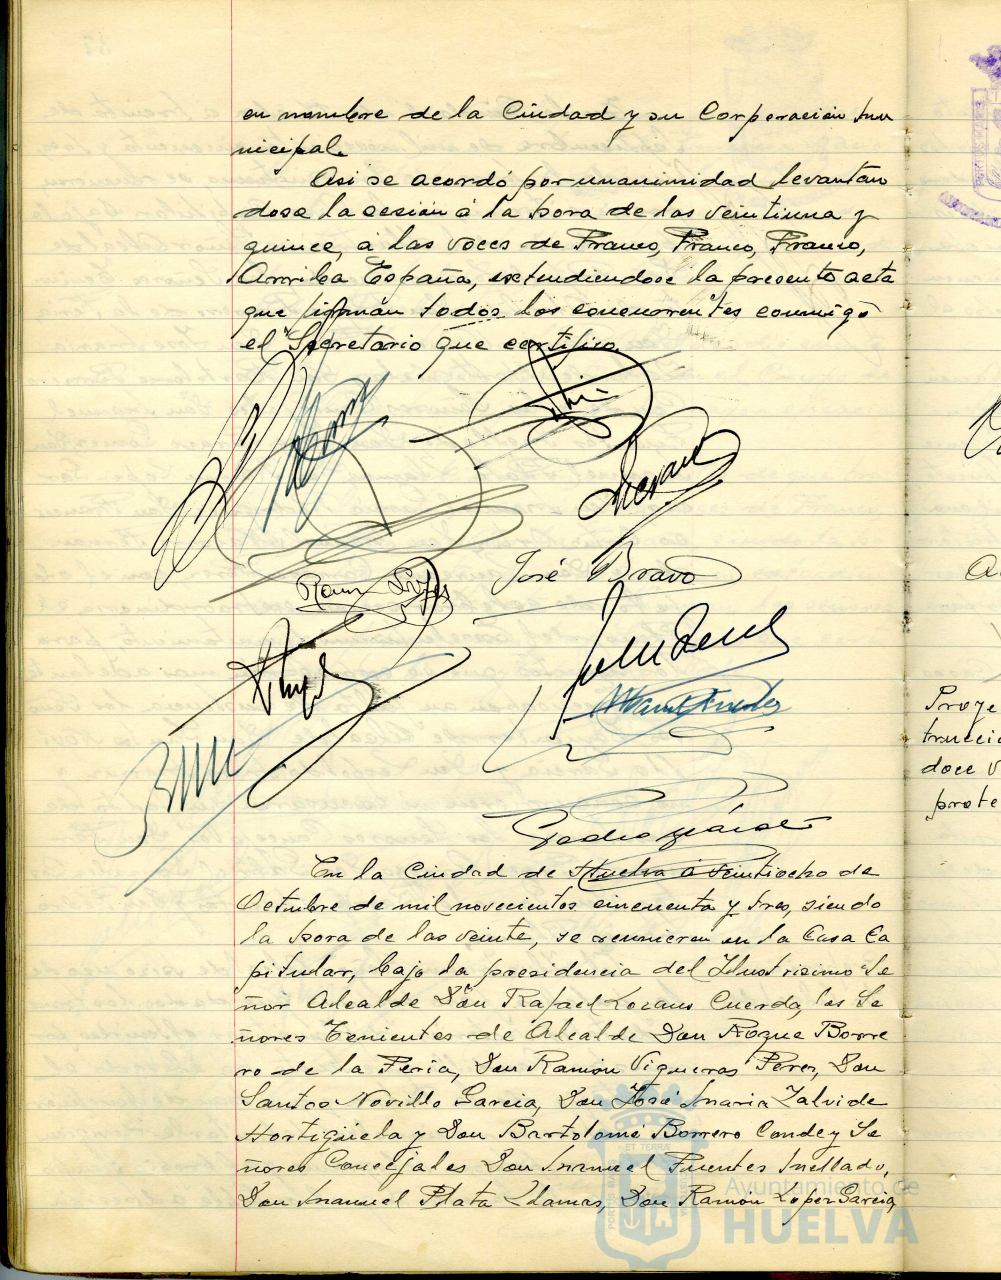 en nombre de la Ciudad y su Corporación mu
nicipal.
Asi se acordó por unanimidad levantan
dose la sesión á la hora de las veintiuna y
quince, á las voces de Franco, Franco, Franco,
Arriba España, extendiendose la presente acta
que firmán todos los concurrentes conmigo
el Secretario que certifico.
José Bravo
En la Ciudad de Huelva á veintiocho de
Octubre de mil novecientos cincuenta y tres, siendo
la hora de las veinte, se reunieron en la Casa Ca
pitular, bajo la presidencia del Ilustrisimo Se
ñor Alcalde Don Rafael Lozano Cuerda, los Se
ñores Tenientes de Alcalde Don Roque Borre
ro de la Feria, Don Ramón Vigueras Perez, Don
Santos Novillo Garcia, Don José Maria Zalvide
Hortigüela y Don Bartolomé Borrero Conde y Se
ñores Concejales Don Manuel Fuentes Mellado,
Don Manuel Plata Llamas, Don Ramón Lopez Garcia,
Proye
trucció
doce v
prote
Ayuntamiento de
HUELVA